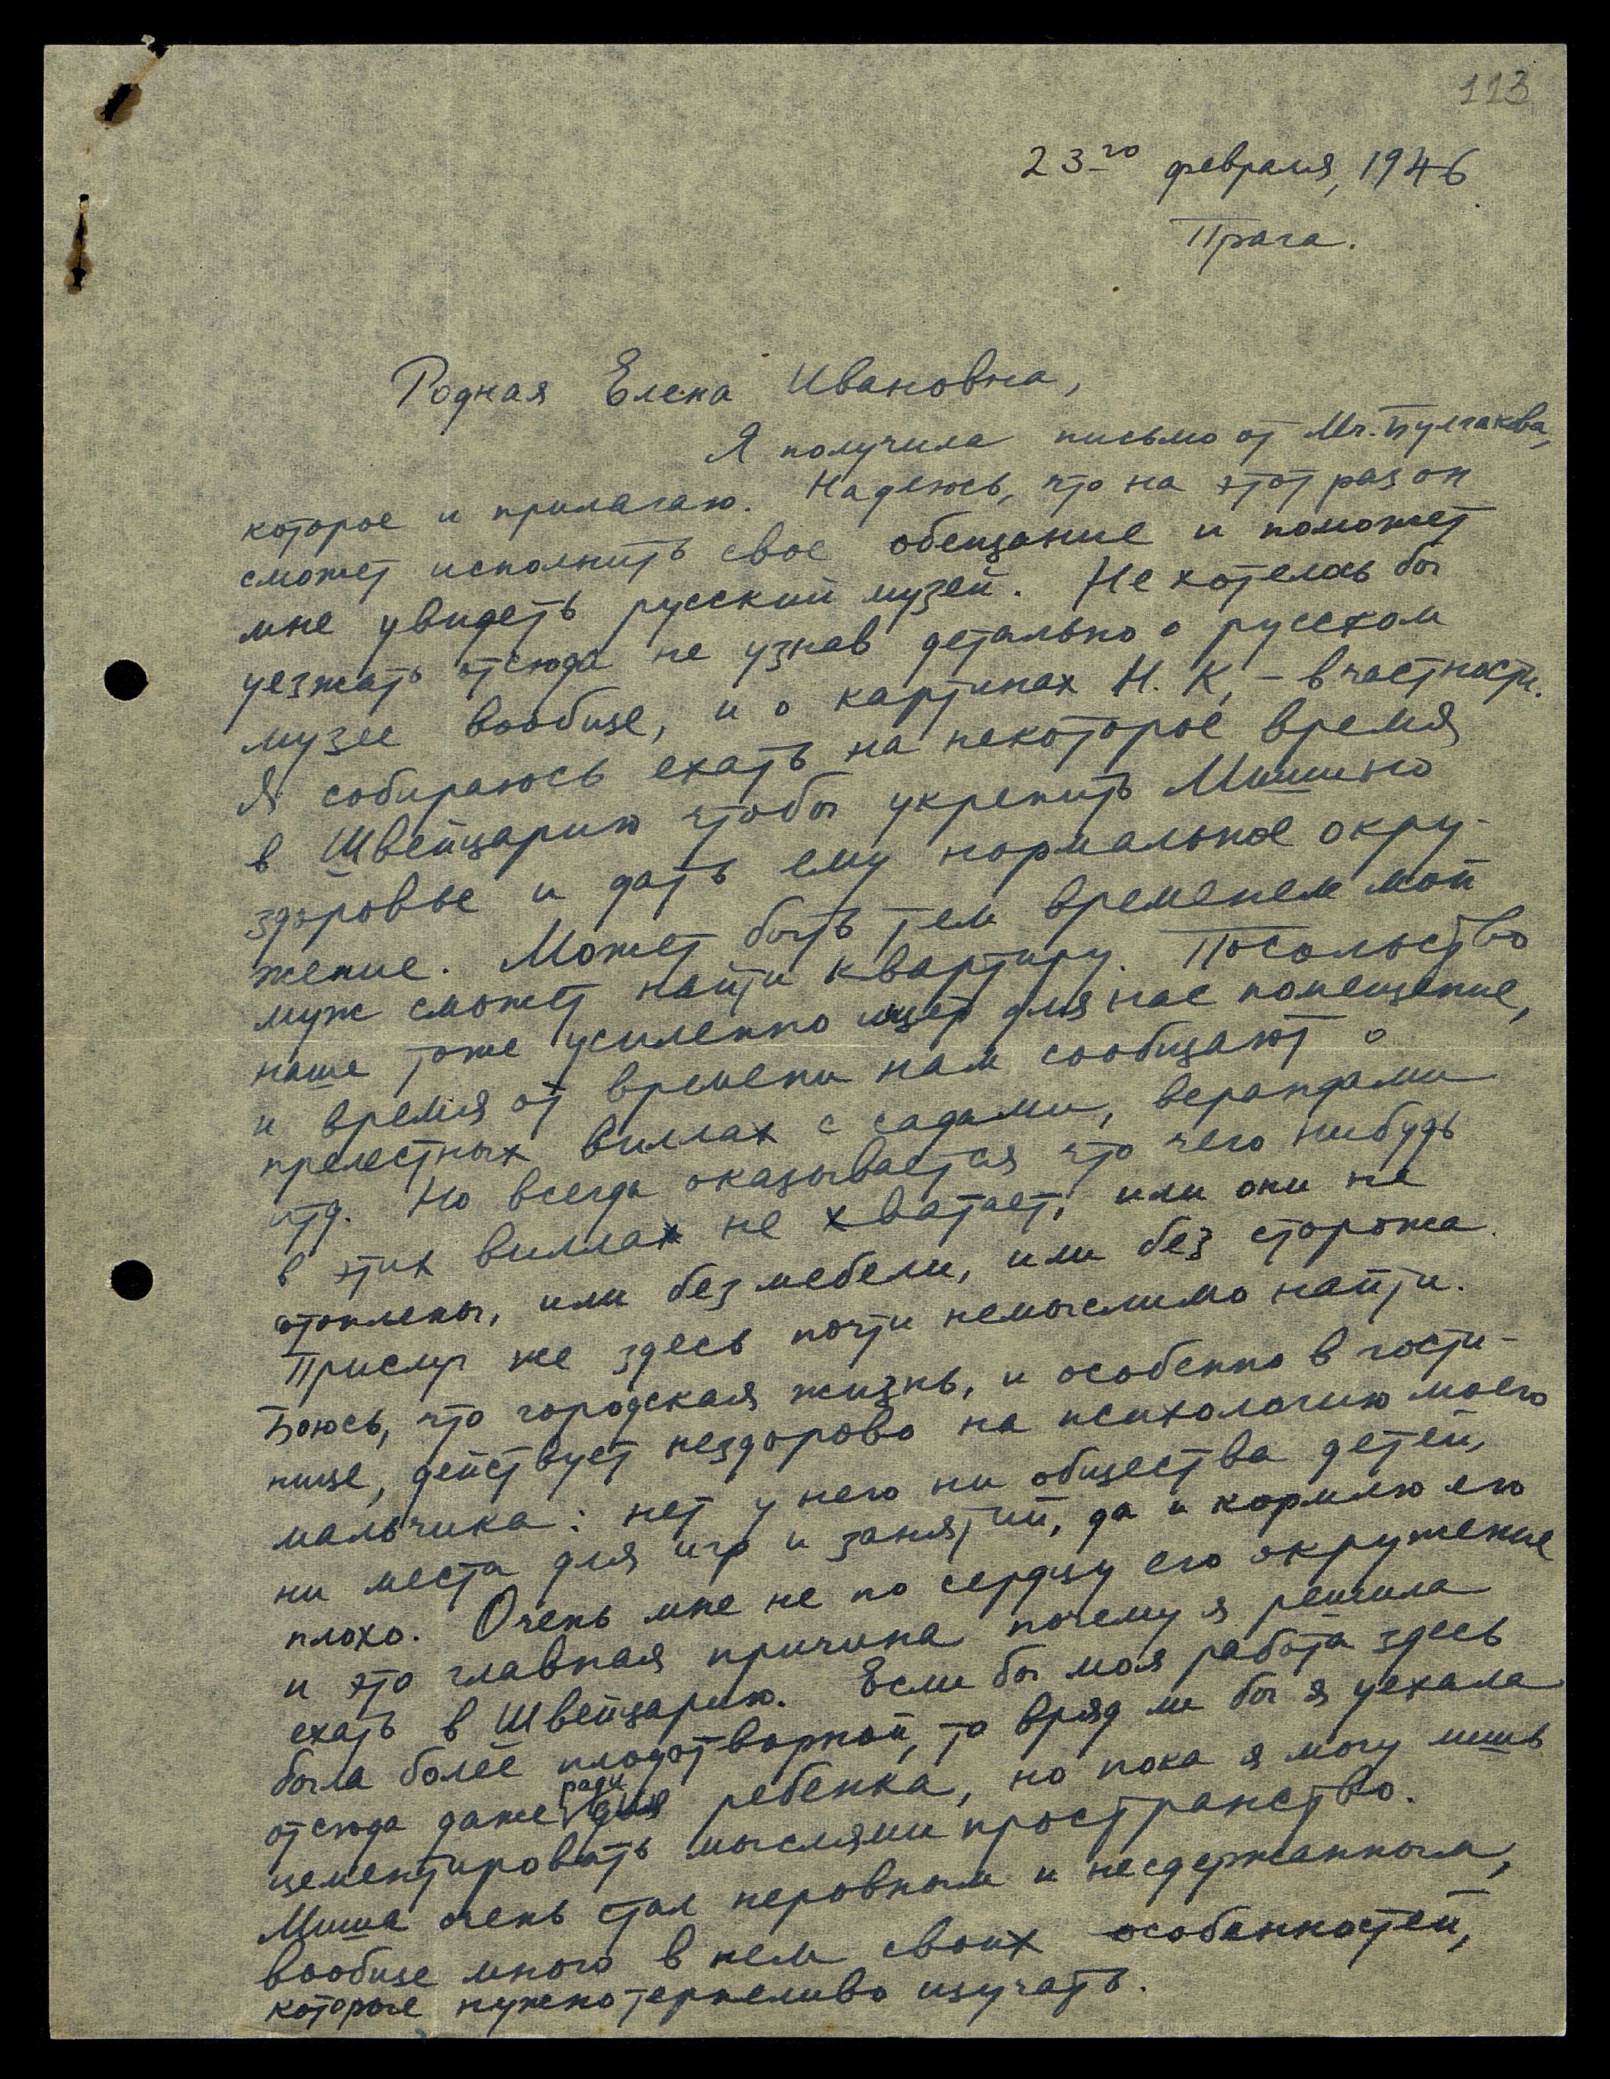 113
23-го февраля, 1946
Прага.
Родная Елена Ивановна,
Я получила письмо от Mr. Булгакова,
которое и прилагаю. Надеюсь, что на этот раз он
сможет исполнить свое обещание и поможет
мне увидеть русский музей. Не хотелось бы
уезжать отсюда не узнав детально о русском
музее вообще, и о картинах Н. К, – в частности.
Я собираюсь ехать на некоторое время
в Швейцарию чтобы укрепить Мишино
здоровье и дать ему нормальное окру-
жение. Может быть тем временем мой
муж сможет найти квартиру. Посольство
наше тоже усиленно ищет для нас помещение,
и время от времени нам сообщают о
прелестных виллах с садами, верандами
итд. Но всегда оказывается что чего нибудь
в этих виллах не хватает, или они не
отоплены, или без мебели, или без сторожа.
Прислуг же здесь почти немыслимо найти.
Боюсь, что городская жизнь, и особенно в гости-
нице, действует нездорово на психологию моего
мальчика: нет у него ни общества детей,
ни места для игр и занятий, да и кормлю его
плохо. Очень мне не по сердцу его окружение
и это главная причина почему я решила
ехать в Швейцарию. Если бы моя работа здесь
была более плодотворной, то вряд ли бы я уехала
отсюда даже ради ребенка, но пока я могу лишь
цементировать мыслями пространство.
Миша очень стал неровным и несдержанным,
вообще много в нем своих особенностей,
которые нужно терпеливо изучать.